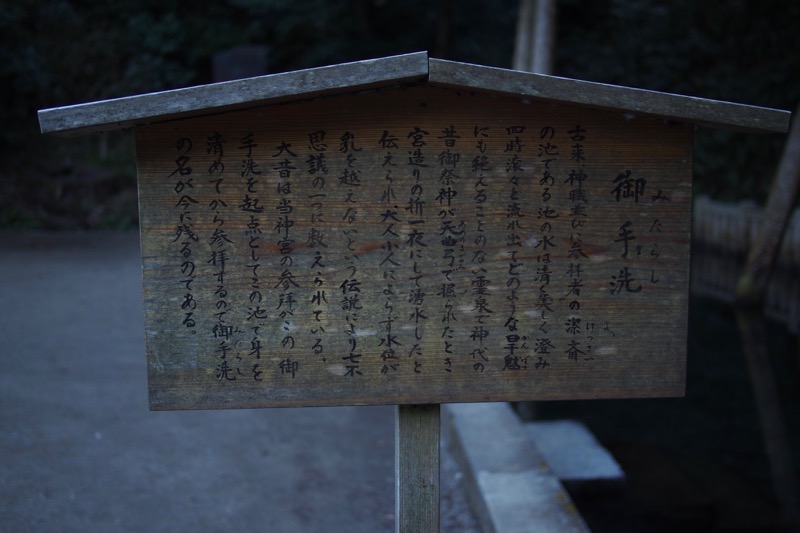 御手洗
みたらし
古来、神職並びに参拝者の潔斎
けっさい
の池である池の水は清く美しく澄み
四時滾々と流れ出てどのような旱魃
かんばつ
にも絶えることのない霊泉で神代の
昔御祭神が天曲弓で掘られたとも
宮造りの折一夜にして湧水したと
伝えられ、大人小人によらず水位が
乳を越えないという伝説により七不
思議の一つに数えられている。
大昔は当神宮の参拝がこの御
手洗を起点としてこの池で身を
清めてから参拝するので御手洗
みたらし
の名が今に残るのである。